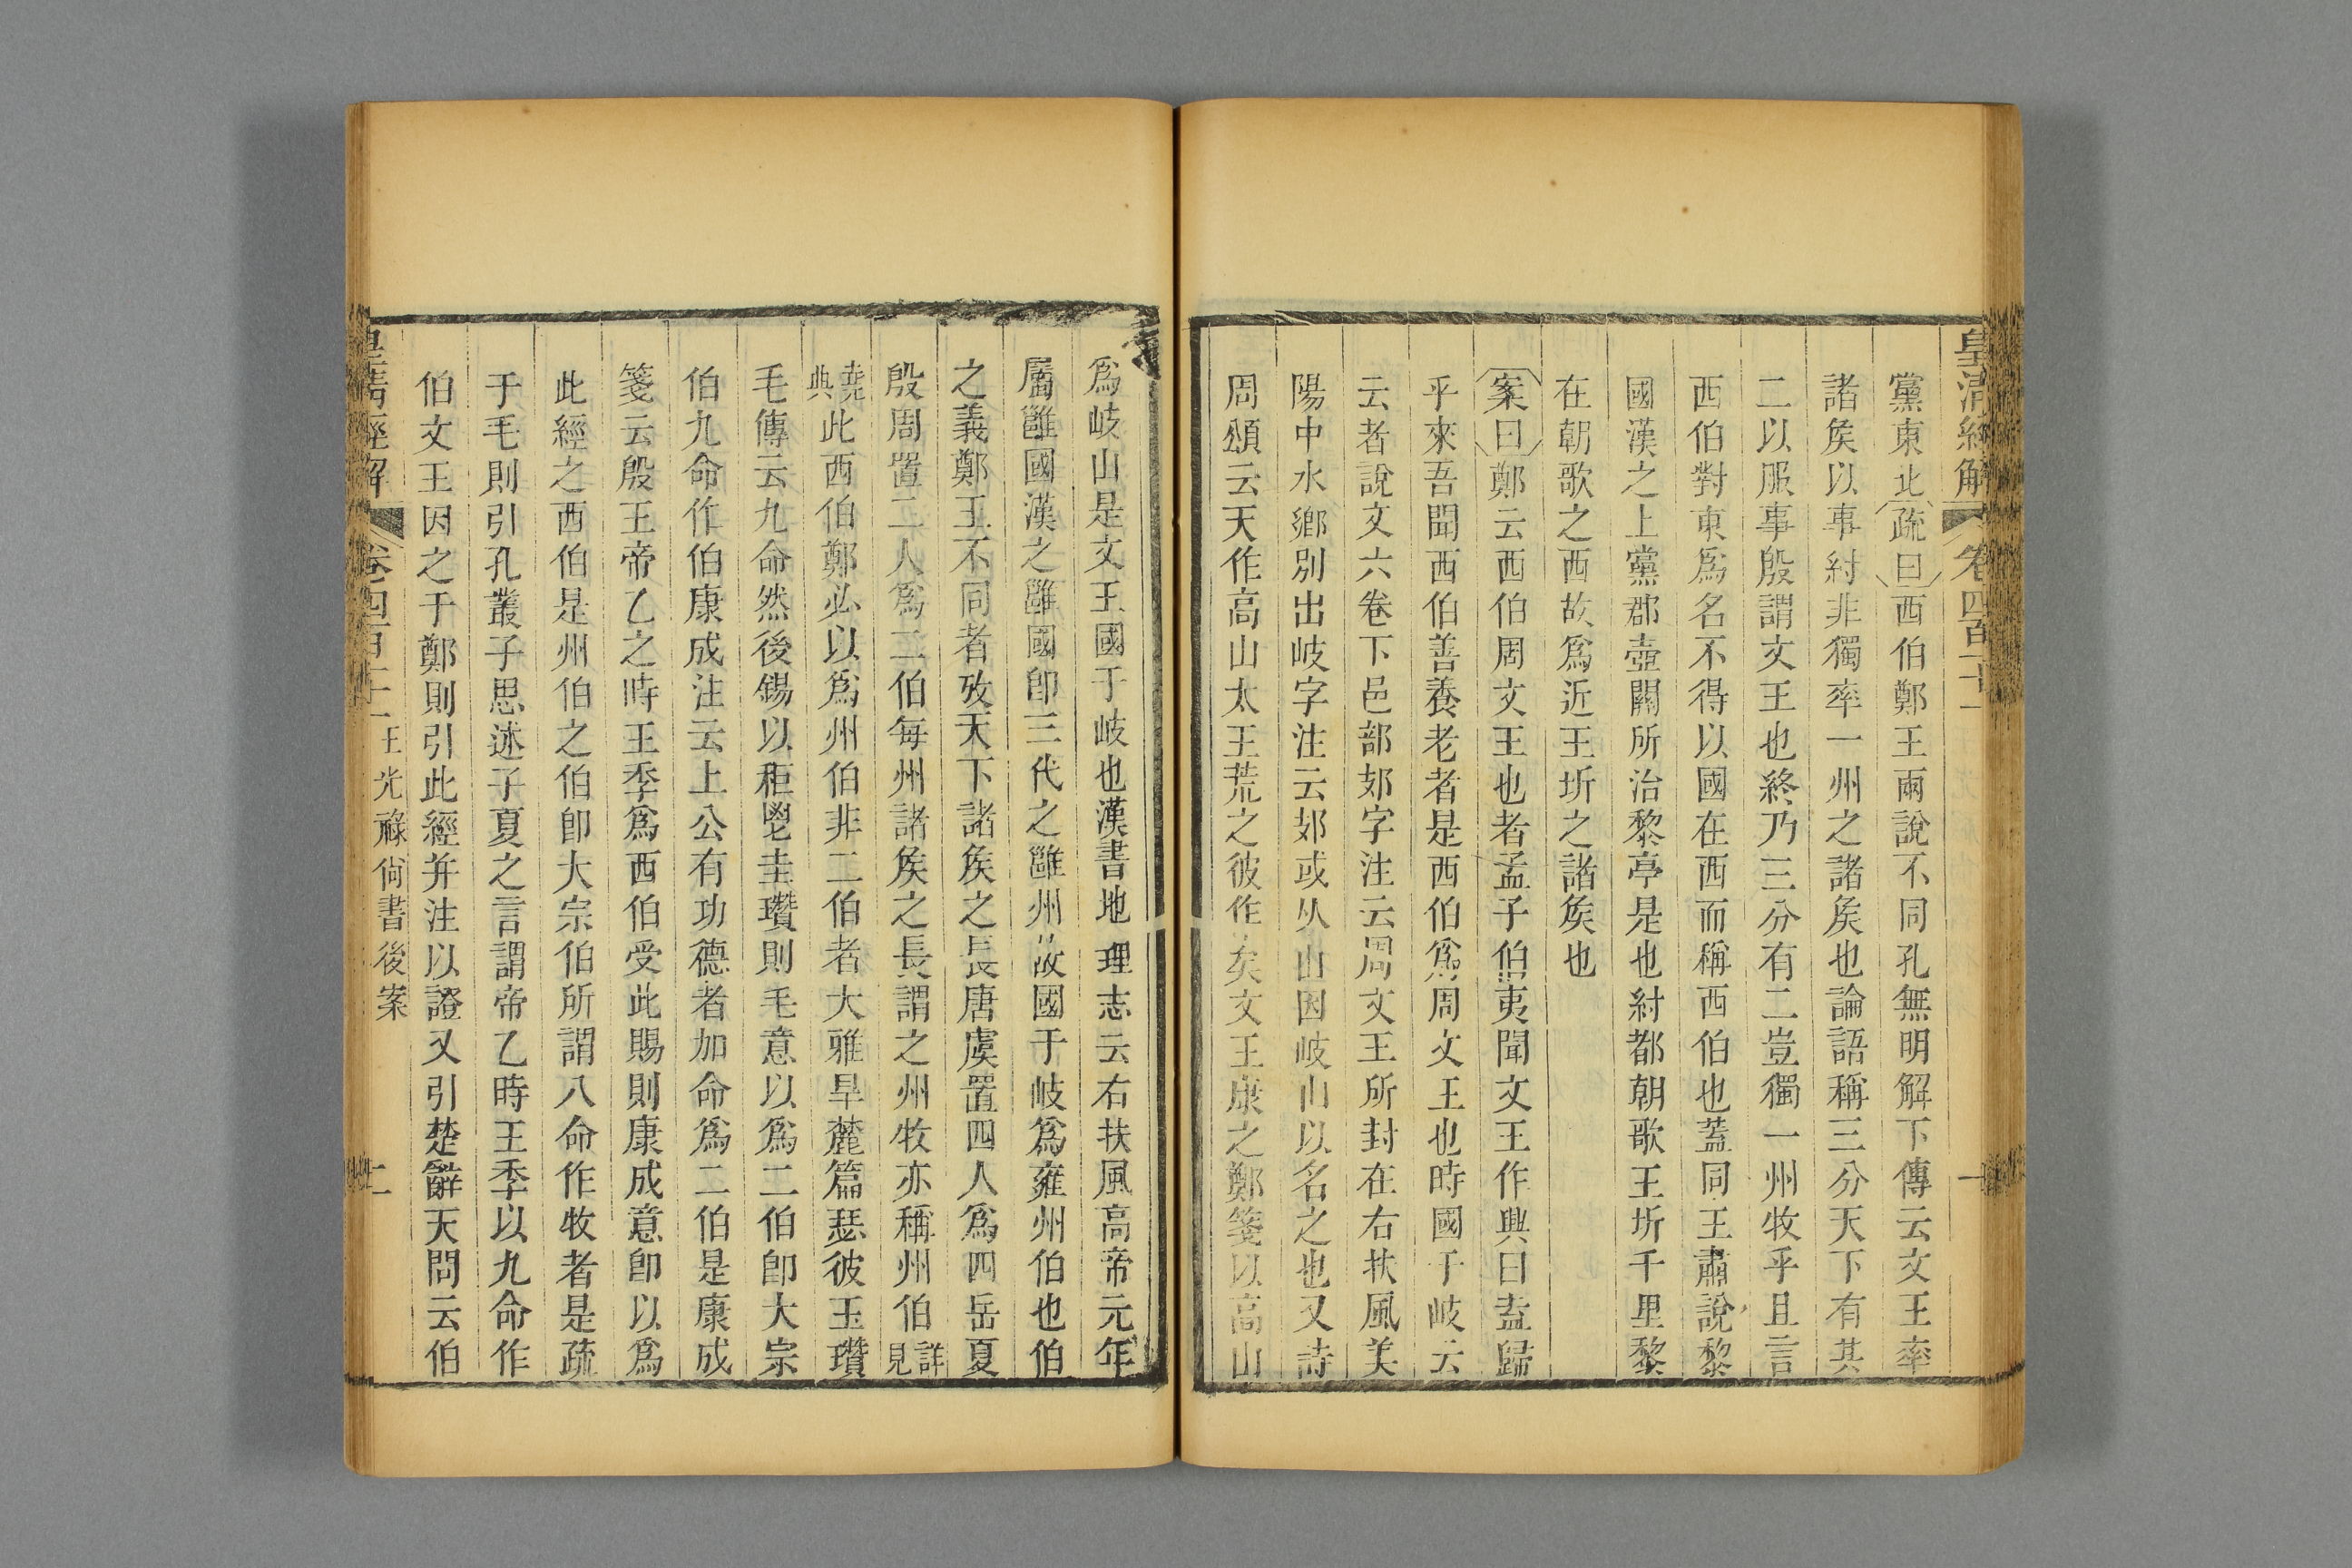 皇清經解 卷四百十一 一
黨東北疏曰西伯鄭王兩說不同孔無明解下傳云文王率
諸矦以事紂非獨率一州之諸矦也論語稱三分天下有其
二以服事殷謂文王也終乃三分有二豈獨一州牧乎且言
西伯對東爲名不得以國在西而稱西伯也蓋同王肅說黎
國漢之上黨郡壺關所治黎亭是也紂都朝歌王圻千里黎
在朝歌之西故爲近王圻之諸矦也
案曰鄭云西伯周文王也者孟子伯夷聞文王作興曰盍歸
乎來吾聞西伯善養老者是西伯爲周文王也時國于岐云
云者說文六卷下邑部𨙸字注云周文王所封在右扶風美
陽中水鄉別出岐字注云𨙸或从山因岐山以名之也又詩
周頌云天作高山太王荒之彼作矣文王康之鄭箋以高山
爲岐山是文王國于岐也漢書地理志云右扶風高帝元年
屬雝國漢之雝國卽三代之雝州故國于岐爲雍州伯也伯
之義鄭王不同者攷天下諸矦之長唐虞置四人爲四岳夏
殷周置二人爲二伯每州諸矦之長謂之州牧亦稱州伯詳見
堯典此西伯鄭必以爲州伯非二伯者大雅旱麓篇瑟彼玉瓚
毛傳云九命然後錫以秬鬯圭瓚則毛意以爲二伯卽大宗
伯九命作伯康成注云上公有功德者加命爲二伯是康成
箋云殷王帝乙之時王季爲西伯受此賜則康成意卽以爲
此經之西伯是州伯之伯卽大宗伯所謂八命作牧者是疏
于毛則引孔叢子思述子夏之言謂帝乙時王季以九命作
伯文王因之于鄭則引此經并注以證又引楚辭天問云伯
皇清經解 卷四百十一 王光祿尙書後案 二